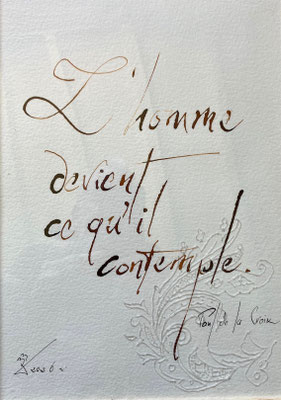 L'homme
devient
ce qu'il
contemple.
de la Croix